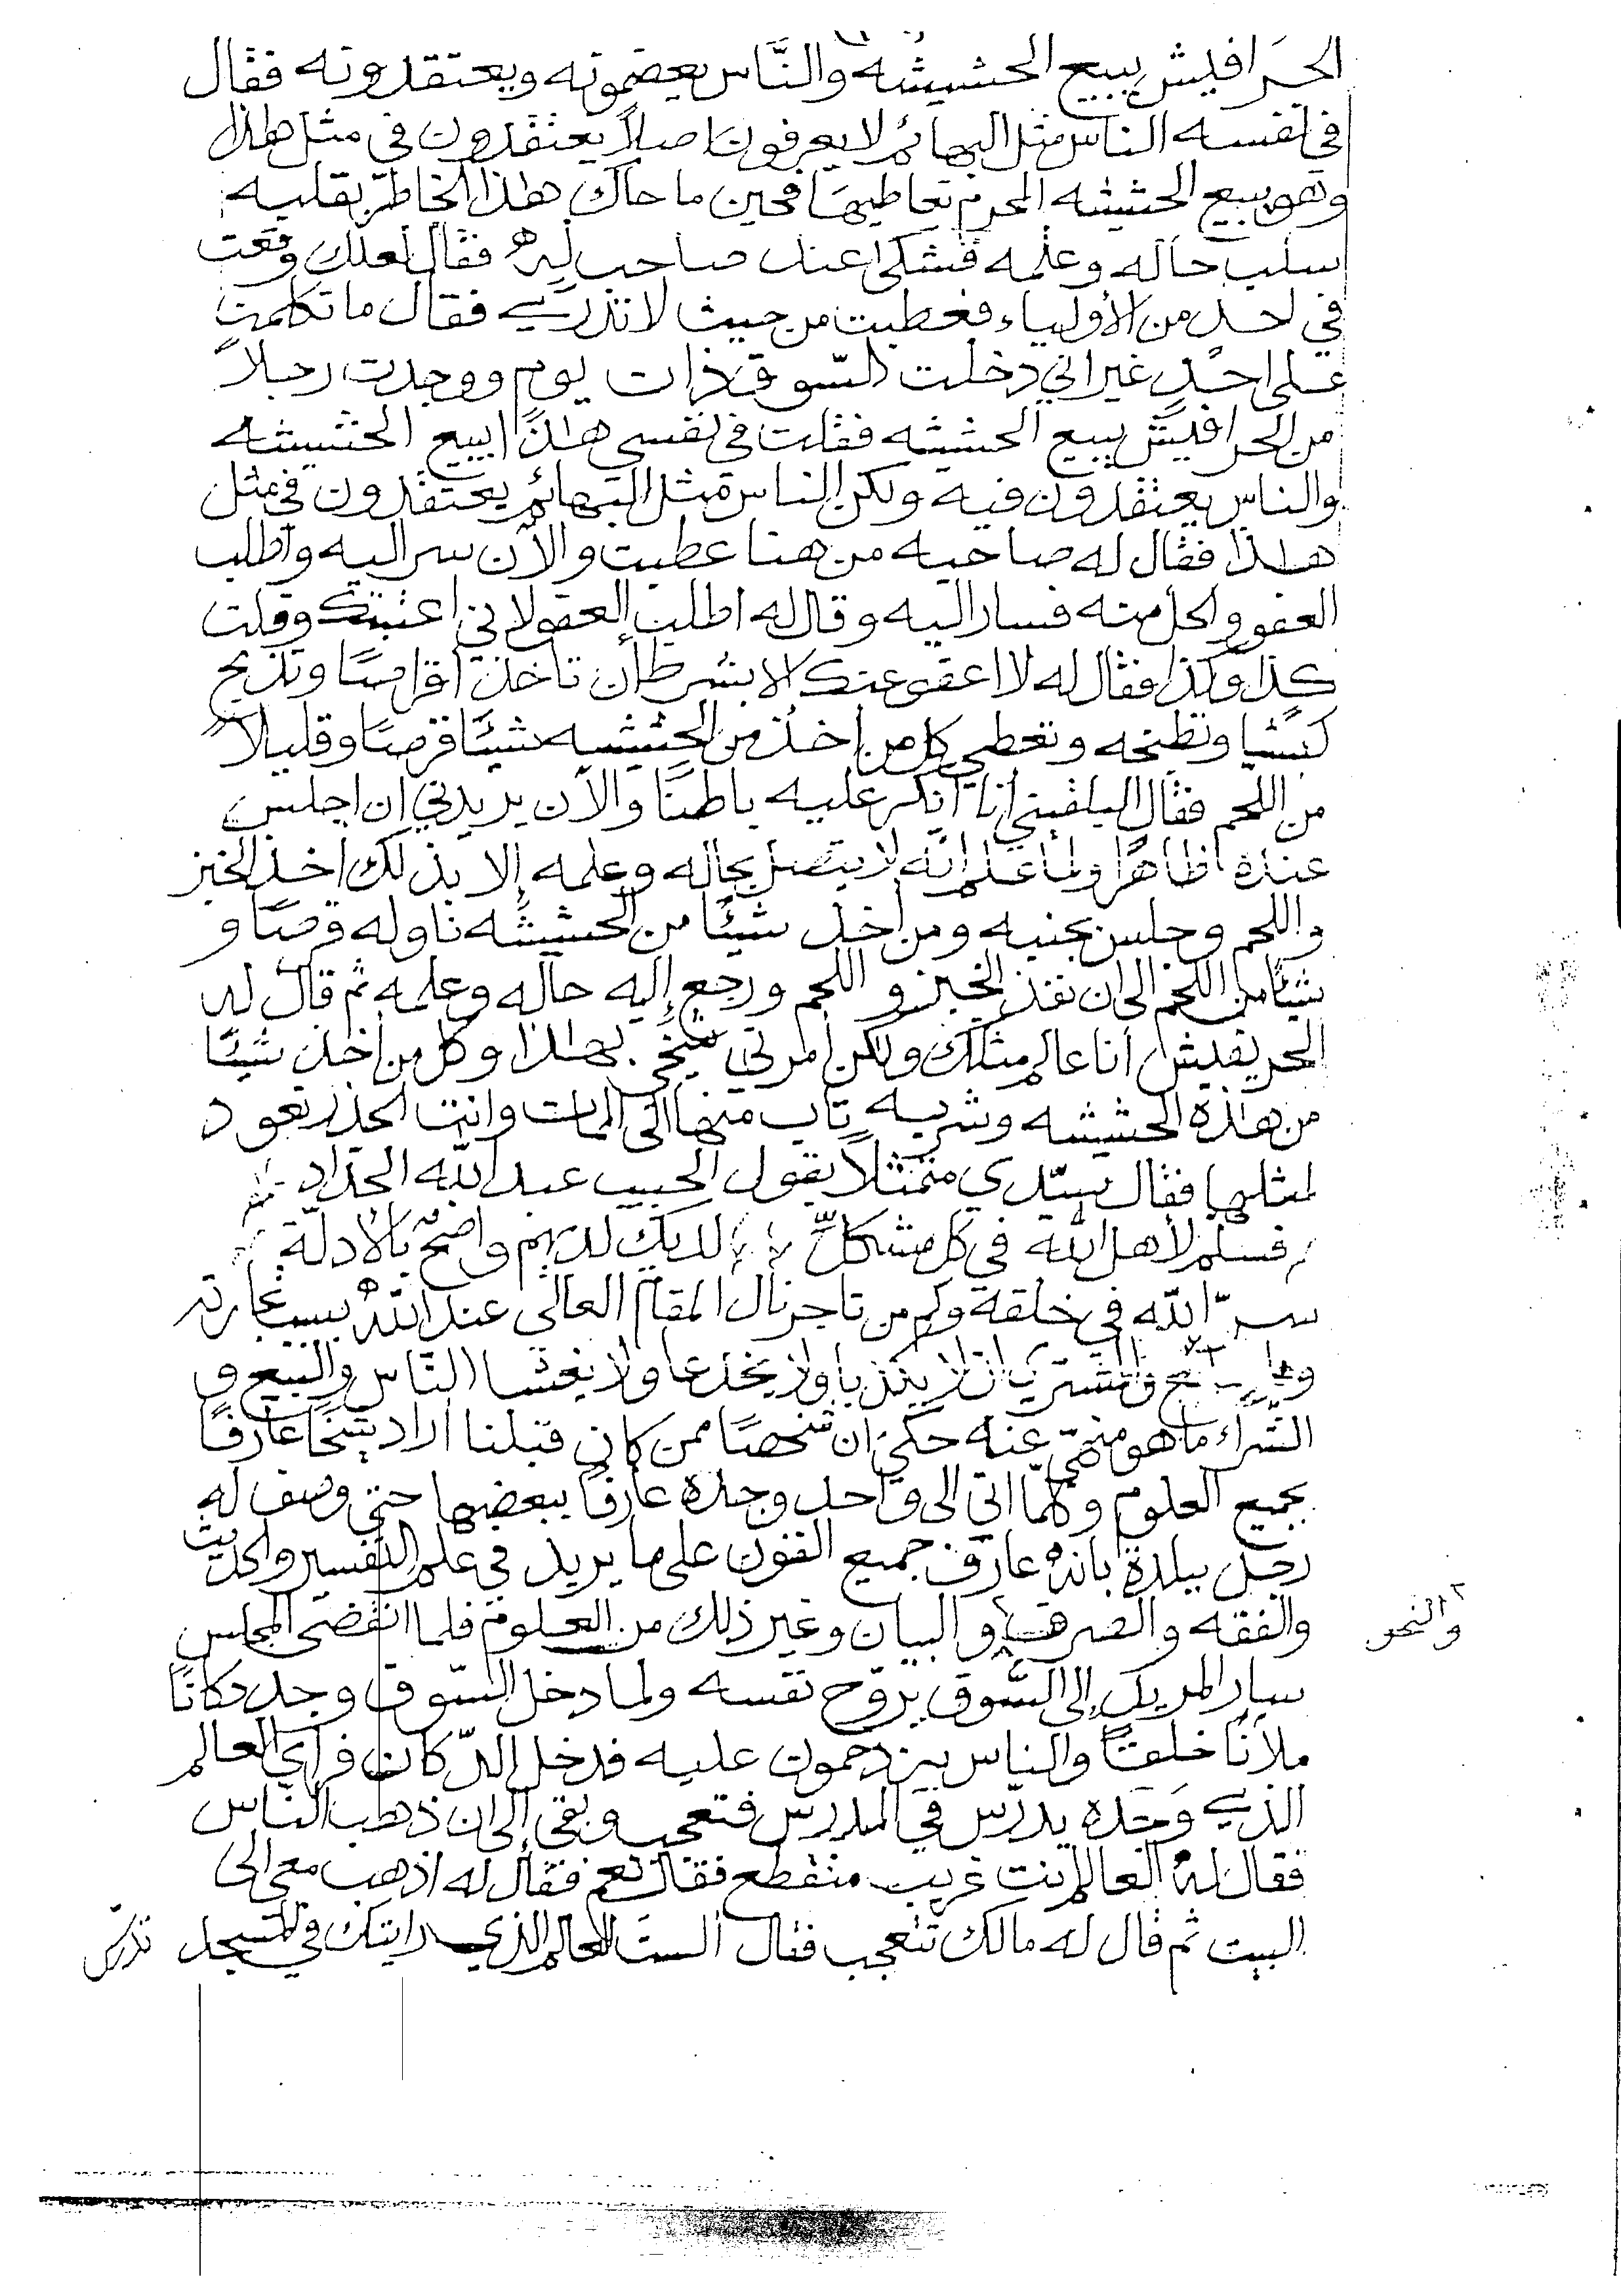 الحرافيش يبيع الحشيشه والنَّاس يعضمونه ويعتقدونه فقال
في نفسه الناس مثل البهائم لا يعرفون اصلاً يعتقدون في مثل هٰذا
وهو يبيع الحشيشه المحرم تعاطيهَا فحين ما حاك هٰذا الخاطر بقلبه
سلب حاله وعلمه فشكى اعند صاحب لهُ فقال لعلك وقعت
في احد من الأولياء فعطبت من حيث لا تدري فقال ما تكلمت
على احدٍ غير اني دخلت السّوق ذات يوم ووجدت رجلاً
من الحرافيش يبيع الحشيشه فقلت في نفسي هٰذا يبيع الحشيشه
والناس يعتقدون فيه ولكن الناس مثل البهائم يعتقدون في مثل
هٰذا فقال له صاحبه من هنا عطبت والآن سر اليه واطلب
العفو والحل منه فسار اليه وقال له اطلب العفو لاني اغتبتك وقلت
كذا وكذا فقال له لا اعفو عنك الا بشرط أن تاخذ اقراصًا وتذبح
كبشا وتطبخه وتعطي كل من اخذ من الحشيشه شيئًا قرصًا وقليلاً
من اللحم فقال البلقيني أنا انكر عليه باطنًا والآن يريدني ان اجلس
عنده ظاهرًا ولما علم انّه لا يتصل بحاله وعلمه إلا بذلك اخذ الخبز
واللحم وجلس بجنبه ومن اخذ شيئًا من الحشيشه ناوله قرصًا و
شيئًا من اللحم الى ان نفذ الخبز و اللحم ورجع إليه حاله وعلمه ثم قال له
الحريفيش أنا عالم مثلك ولكن امرني شيخي بهٰذا وكل من أخذ شيئًا
من هٰذه الحشيشه وشربه تاب منها الى الممات وانت احذر تعود
لمثلها فقال سيّدي متمثلاً بقول الحبيب عبد اللّه الحدّاد
فسلّم لأهل اللّه في كل مشكلٍّ لديك لديهم واضحٌ بالأدلّة
سرّ اللّه في خلقه وكم من تاجر نال المقام العالي عند اللّه بسبب تجارته
ان لا يكذبا ولا يخدعا ولا يغشا النّاس والبيع و
الشّراء ما هو منهيّ عنه حكي ان شخصًا ممن كان قبلنا اراد شيخًا عارفًا
بجميع العلوم وكلما اتى الى واحد وجده عارفًا ببعضها حتى وصف له
رجل ببلدة بانهُ عارف جميع الفنون على ما يريد في علم التفسير والحديث
والفقه والصرف والبيان وغير ذلك من العلوم فلما انقضى المجلس
والنحو
سار المريد إلى السّوق يروّح نفسه ولما دخل السّوق وجد دكانًا
ملآنًا خلقًا والناس يزدحمون عليه فدخل الدّكان فرأى العالم
الذي وَجَده يدرّس في المدرس فتعجب وبقي إلى ان ذهب النّاس
فقال لهُ العالم انت غريب منقطع فقال نعم فقال له اذهب معي الى
البيت ثم قال له مالك تتعجب فقال ألستَ العالم الذي رايتك في المسجد تدرّس